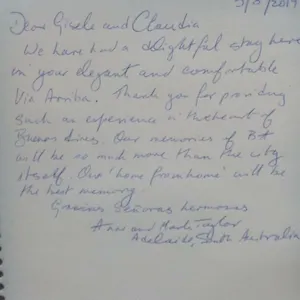 3/3/2019
Dear Gisele and Claudia
We have had a delightful stay here
in your elegant and comfortable
Via Arriba. Thank you for providing
such an experience in the heart of
Buenos Aires. Our memories of BA
will be so much more than the city
itself. Our 'home from home' will be
the best memory.
Gracias Señoras hermosas
Anne and Mark Taylor
Adelaide, South Australia